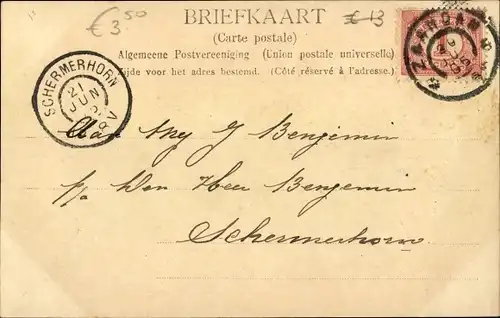 € 3.50
€ 13
BRIEFKAART
(Carte postale)
Algemeene Postvereeniging (Union postale universelle)
Zijde voor het adres bestemd. (Côté réservé à l'adresse.)
ZAANDAM
SCHERMERHORN
21
JUN
8V
Aan Mej Benjemin
p/a Den Heer Benjemin
Schermerhorn